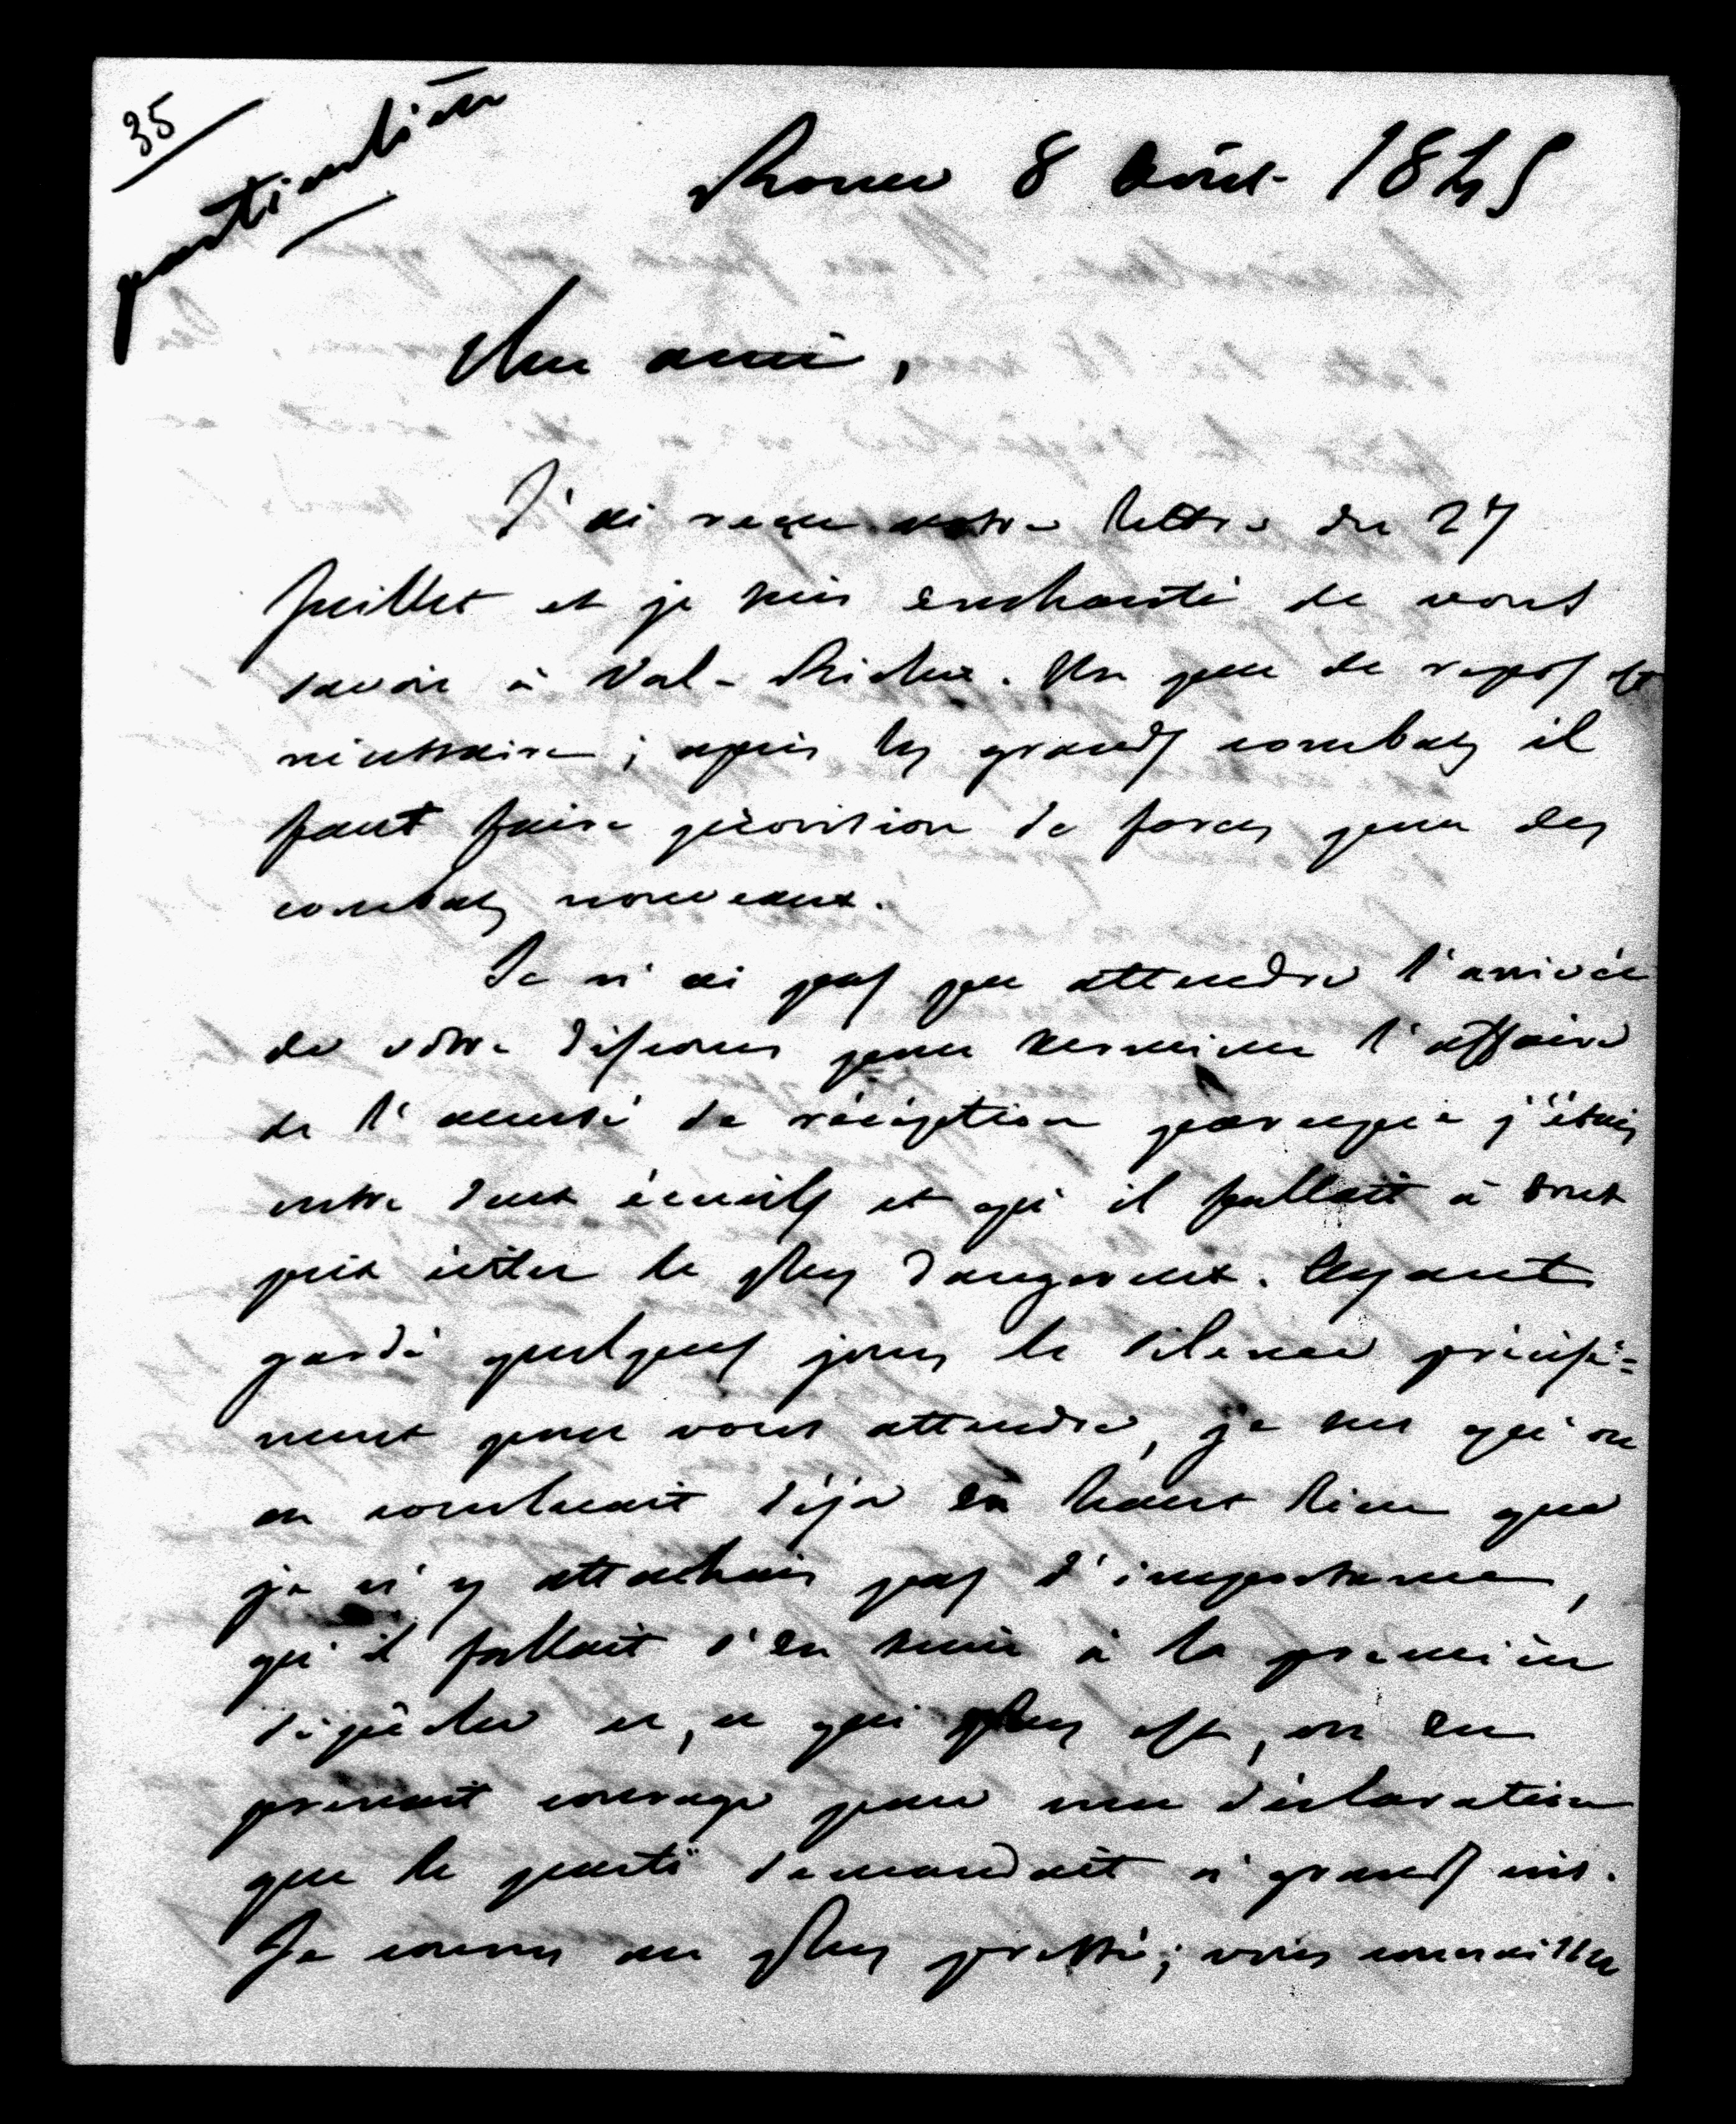 35
particulière
Rome 8 Août 1845
Mon ami,
J'ai reçu votre lettre du 27
Juillet et je suis enchanté de vous
savoir à Val-Richer. Un peu de repos est
nécessaire ; après les grands combats il
faut faire provision de forces pour des
combats nouveaux.
Je n'ai pas pu attendre l'arrivée
de votre discours pour terminer l'affaire
de l'accusé de réception parceque j'étais
entre deux écueils et qu'il fallait à tout
prix éviter le plus dangereux. Ayant
gardé quelques jours le silence précisé=
ment pour vous attendre, je sus qu'on
en concluait déjà en haut lieu que
je n'y attachais pas d'importance,
qu'il fallait s'en tenir à la première
dépêche et, ce qui plus est, on en
prenait courage pour une déclaration
que le parti demandait à grands cris.
Je courus au plus pressé ; vous connaissez